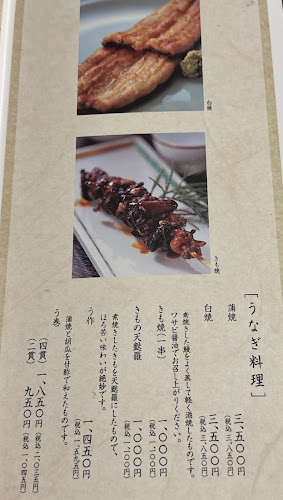 白焼
きも焼
［うなぎ料理］
蒲焼 三、五〇〇円（税込 三、八五〇円）
白焼 三、五〇〇円（税込 三、八五〇円）
素焼きした鰻をよく蒸して軽く酒焼したものです。
ワサビ醤油でお召し上がりください。
きも焼（一串） 一、〇〇〇円（税込 一、一〇〇円）
きもの天麩羅 一、〇〇〇円（税込 一、一〇〇円）
素焼きしたきもを天麩羅にしたもので、
ほろ苦い味わいが絶妙です。
う作 一、四五〇円（税込 一、五九五円）
蒲焼と胡瓜を甘酢で和えたものです。
う巻
（四貫） 一、八五〇円（税込 二、〇三五円）
（二貫） 九五〇円（税込 一、〇四五円）